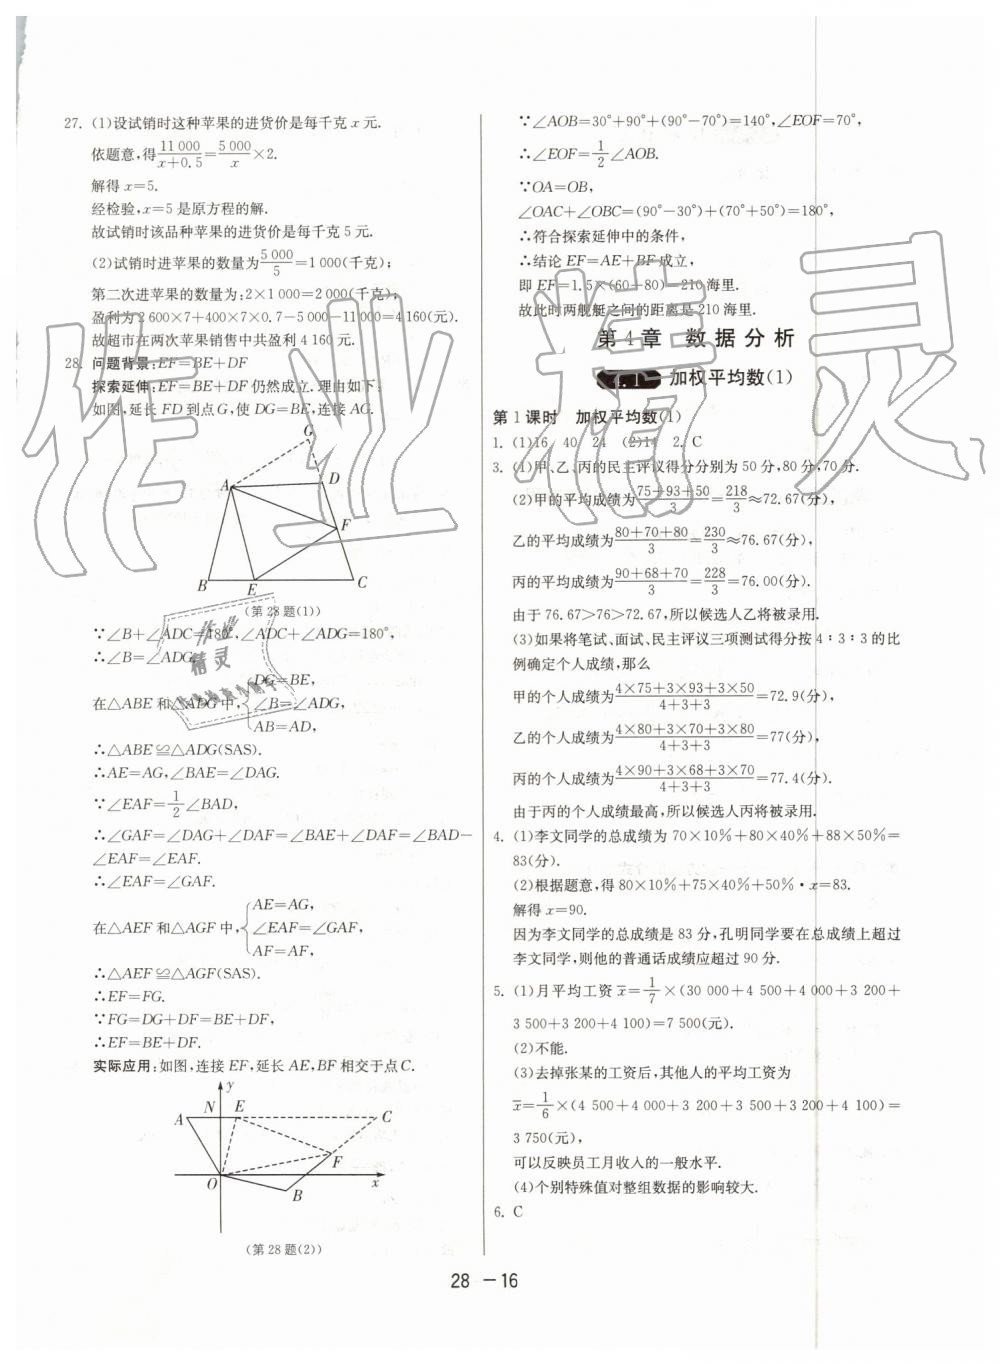 27. (1)设试销时这种苹果的进货价是每千克 x 元.
依题意,得11 000/(x+0.5)=5 000/x×2.
解得 x=5.
经检验,x=5 是原方程的解.
故试销时该品种苹果的进货价是每千克 5 元.
(2)试销时进苹果的数量为5 000/5=1 000(千克);
第二次进苹果的数量为:2×1 000=2 000(千克);
盈利为 2 600×7+400×7×0.7-5 000-11 000=4 160(元).
故超市在两次苹果销售中共盈利 4 160 元.
28. 问题背景:EF=BE+DF
探索延伸:EF=BE+DF 仍然成立.理由如下:
如图,延长 FD 到点 G,使 DG=BE,连接 AG.
G
A
D
F
B
E
C
(第 28 题(1))
∵∠B+∠ADC=180°,∠ADC+∠ADG=180°,
∴∠B=∠ADG.
在△ABE 和△ADG 中,{DG=BE,
∠B=∠ADG,
AB=AD,
∴△ABE≌△ADG(SAS).
∴AE=AG,∠BAE=∠DAG.
∵∠EAF=1/2∠BAD,
∴∠GAF=∠DAG+∠DAF=∠BAE+∠DAF=∠BAD-
∠EAF=∠EAF.
∴∠EAF=∠GAF.
在△AEF 和△AGF 中,{AE=AG,
∠EAF=∠GAF,
AF=AF,
∴△AEF≌△AGF(SAS).
∴EF=FG.
∵FG=DG+DF=BE+DF,
∴EF=BE+DF.
实际应用:如图,连接 EF,延长 AE,BF 相交于点 C.
y
A
N
E
C
F
O
B
x
(第 28 题(2))
∵∠AOB=30°+90°+(90°-70°)=140°,∠EOF=70°,
∴∠EOF=1/2∠AOB.
∵OA=OB,
∠OAC+∠OBC=(90°-30°)+(70°+50°)=180°,
∴符合探索延伸中的条件,
∴结论 EF=AE+BF 成立,
即 EF=1.5×(60+80)=210 海里.
故此时两舰艇之间的距离是 210 海里.
第 4 章 数据分析
4.1 加权平均数(1)
第 1 课时 加权平均数(1)
1. (1)16 40 24 (2)14 2. C
3. (1)甲、乙、丙的民主评议得分分别为 50 分,80 分,70 分.
(2)甲的平均成绩为(75+93+50)/3=218/3≈72.67(分),
乙的平均成绩为(80+70+80)/3=230/3≈76.67(分),
丙的平均成绩为(90+68+70)/3=228/3=76.00(分).
由于 76.67>76>72.67,所以候选人乙将被录用.
(3)如果将笔试、面试、民主评议三项测试得分按 4∶3∶3 的比
例确定个人成绩,那么
甲的个人成绩为(4×75+3×93+3×50)/(4+3+3)=72.9(分),
乙的个人成绩为(4×80+3×70+3×80)/(4+3+3)=77(分),
丙的个人成绩为(4×90+3×68+3×70)/(4+3+3)=77.4(分).
由于丙的个人成绩最高,所以候选人丙将被录用.
4. (1)李文同学的总成绩为 70×10%+80×40%+88×50%=
83(分).
(2)根据题意,得 80×10%+75×40%+50%·x=83.
解得 x=90.
因为李文同学的总成绩是 83 分,孔明同学要在总成绩上超过
李文同学,则他的普通话成绩应超过 90 分.
5. (1)月平均工资 x̄=1/7×(30 000+4 500+4 000+3 200+
3 500+3 200+4 100)=7 500(元).
(2)不能.
(3)去掉张某的工资后,其他人的平均工资为
x̄=1/6×(4 500+4 000+3 200+3 500+3 200+4 100)=
3 750(元),
可以反映员工月收入的一般水平.
(4)个别特殊值对整组数据的影响较大.
6. C
28 -16
作业精灵
作业
精灵